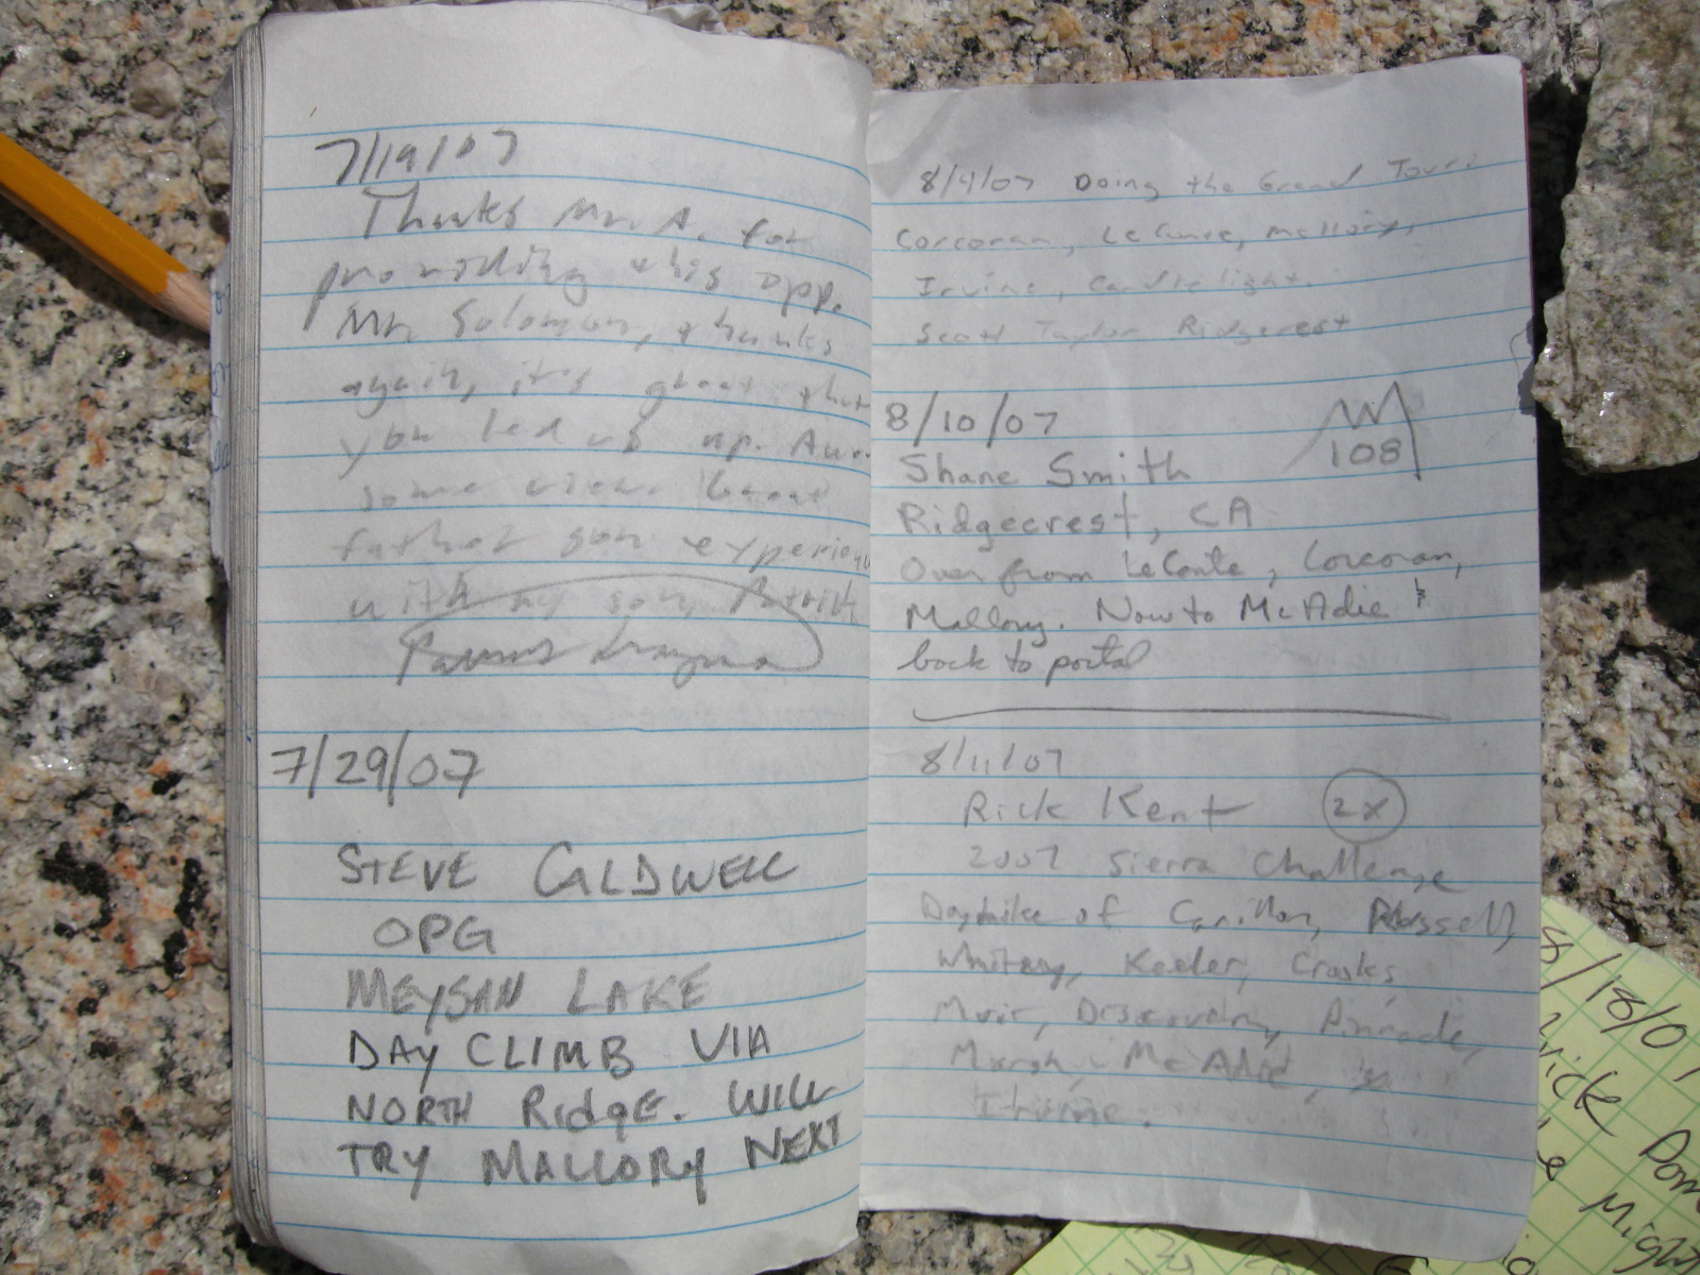 7/19/07
Thanks Mr. A. for
providing this opp.
Mr. Solomon, thanks
again, it's great that
you led us up. Awe-
some view. Great
father son experience
with my son, Patrick
7/29/07
STEVE CALDWELL
OPG
MEYSAN LAKE
DAY CLIMB VIA
NORTH RIdgE. WILL
TRY MALLORY NEXT
8/4/07 Doing the Grand Tour:
Corcoran, LeConte, Mallory,
Irvine, Candlelight.
Scott Taylor Ridgecrest
8/10/07
108
Shane Smith
Ridgecrest, CA
Over from LeConte, Corcoran,
Mallory. Now to McAdie &
back to portal
8/11/07
Rick Kent 2x
2007 Sierra Challenge
Dayhike of Carillon, Russell,
Whitney, Keeler, Crooks,
Muir, Discovery, Pinnacle,
Marsh, McAdie,
Irvine.
8/18/07